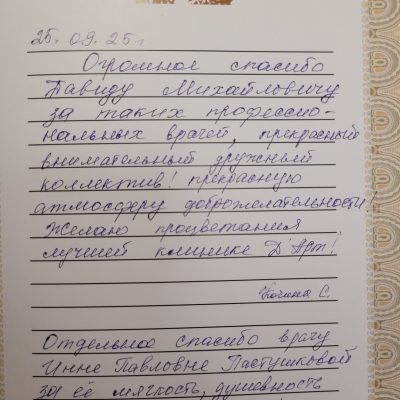 25.09.25г.
Огромное спасибо
Давиду Михайловичу
за таких профессио-
нальных врачей, прекрасный
внимательный дружный
коллектив! прекрасную
атмосферу доброжелательности!
Желаю процветания
лучшей клинике Д'Арт!
С.
Отдельное спасибо врачу
Инне Павловне Пастушковой
за её мягкость, душевность